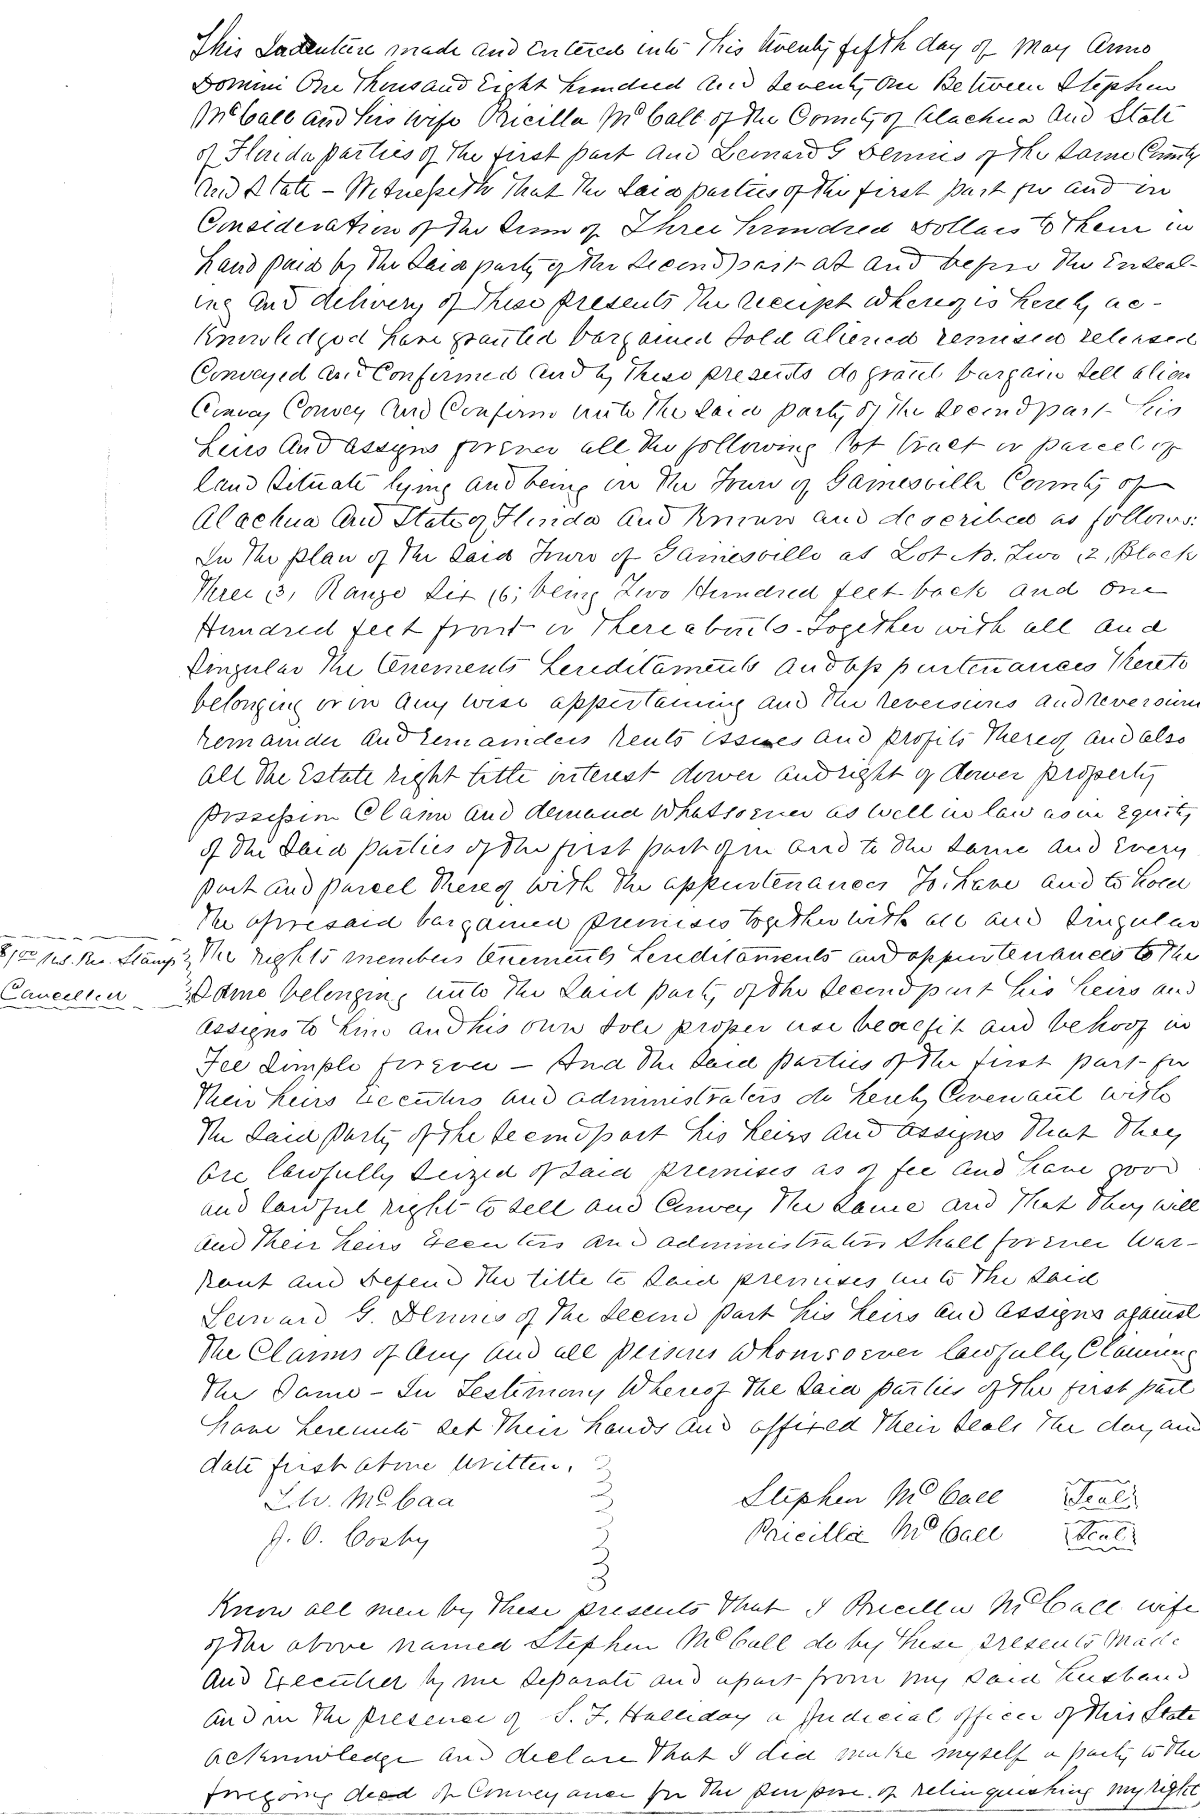 This Indenture made and entered into this twenty fifth day of May Anno
Domini One Thousand Eight hundred and seventy one Between Stephen
McCall and his wife Pricilla McCall of the County of Alachua and State
of Florida parties of the first part and Leonard G Dennis of the same County
and State - Witnesseth that the said parties of the first part for and in
Consideration of the sum of Three hundred Dollars to them in
hand paid by the said party of the second part at and before the Enseal-
ing and delivery of these presents the receipt whereof is hereby ac-
knowledged have granted bargained sold aliened remised released
Conveyed and Confirmed and by these presents do grant bargain sell alien
Convey Convey and Confirm unto the said party of the second part his
heirs and assigns forever all the following lot tract or parcel of
land situate lying and being in the Town of Gainesville County of
Alachua and State of Florida and known and described as follows:
In the plan of the said Town of Gainesville as Lot No. Two (2, Block
Three (3, Range Six (6; being Two Hundred feet back and one
Hundred feet front or thereabouts - Together with all and
singular the tenements hereditaments and appurtenances thereto
belonging or in any wise appertaining and the reversions and reversions
remainder and remainders rents issues and profits thereof and also
all the Estate right title interest dower and right of dower property
possession Claim and demand whatsoever as well in law as in Equity
of the said parties of the first part of in and to the same and Every
part and parcel thereof with the appurtenances To have and to hold
the aforesaid bargained premises together with all and singular
$1 00 Int. Rev. Stamp The rights members tenements hereditaments and appurtenances to the
Cancelled same belonging unto the said party of the second part his heirs and
assigns to him and his own sole proper use benefit and behoof in
Fee simple forever - And the said parties of the first part for
their heirs Executors and administrators do hereby Covenant with
the said party of the second part his heirs and assigns that they
are lawfully seized of said premises as of fee and have good
and lawful right to sell and Convey the same and that they will
and their heirs Executors and administrators shall forever War-
rant and Defend the title to said premises unto the said
Leonard G. Dennis of the second part his heirs and assigns against
the Claims of any and all persons whomsoever lawfully Claiming
the same - In Testimony Whereof the said parties of the first part
have hereunto set their hands and affixed their seals the day and
date first above written.
L.W. McCaa Stephen McCall Seal
J. O. Cosby Pricilla McCall Seal
Know all men by these presents that I Pricilla McCall wife
of the above named Stephen McCall do by these presents made
and Executed by me separate and apart from my said husband
and in the presence of S. F. Halliday a Judicial officer of this State
acknowledge and declare that I did make myself a party to the
foregoing deed of Conveyance for the purpose of relinquishing my right